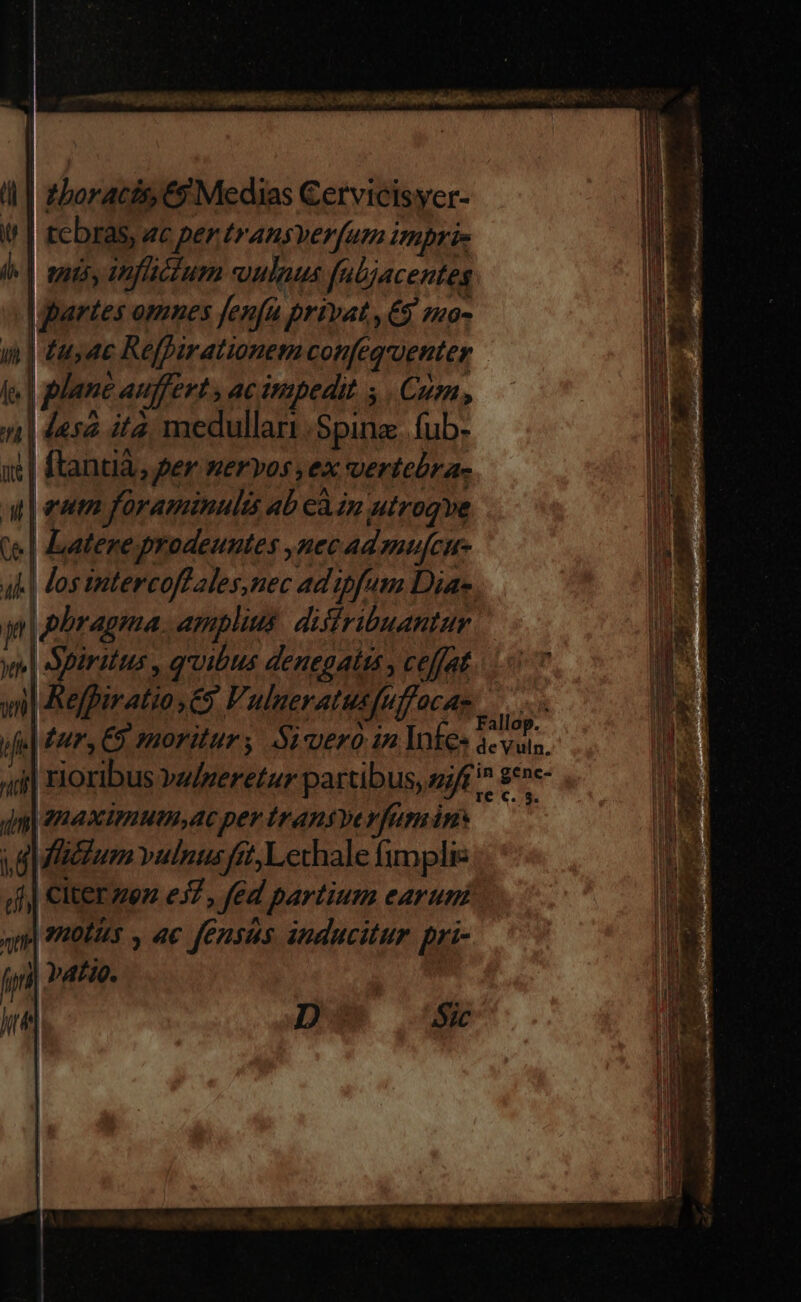 thoracis, & Medias Cervicis ver-
tebras, ac per transversum impri-
mis, inflictum vulnus subjacentes
partes omnes sensu privat, & mo-
tu, ac Respirationem conseqventer
planè auffert, ac impedit; Cùm,
læsâ itâ medullari Spinæ sub-
stantiâ, per nervos, ex vertebra-
rum foraminulis ab eâ in utroqve
Latere prodeuntes, nec ad muscu-
los intercostales, nec ad ipsum Dia-
phragma amplius distribuantur
Spiritus, qvibus denegatis, cessat
Respiratio, & Vulneratus suffoca-
tur, & moritur; Si verò in Infe-
rioribus vulneretur partibus, nisi
maximum, ac per transversum in-
flictum vulnus sit, Lethale simpli-
citer non est, sed partium earum
motûs, ac sensûs inducitur pri-
vatio.
Fallop.
de vuln.
in gene-
re c. 3.
D Sic